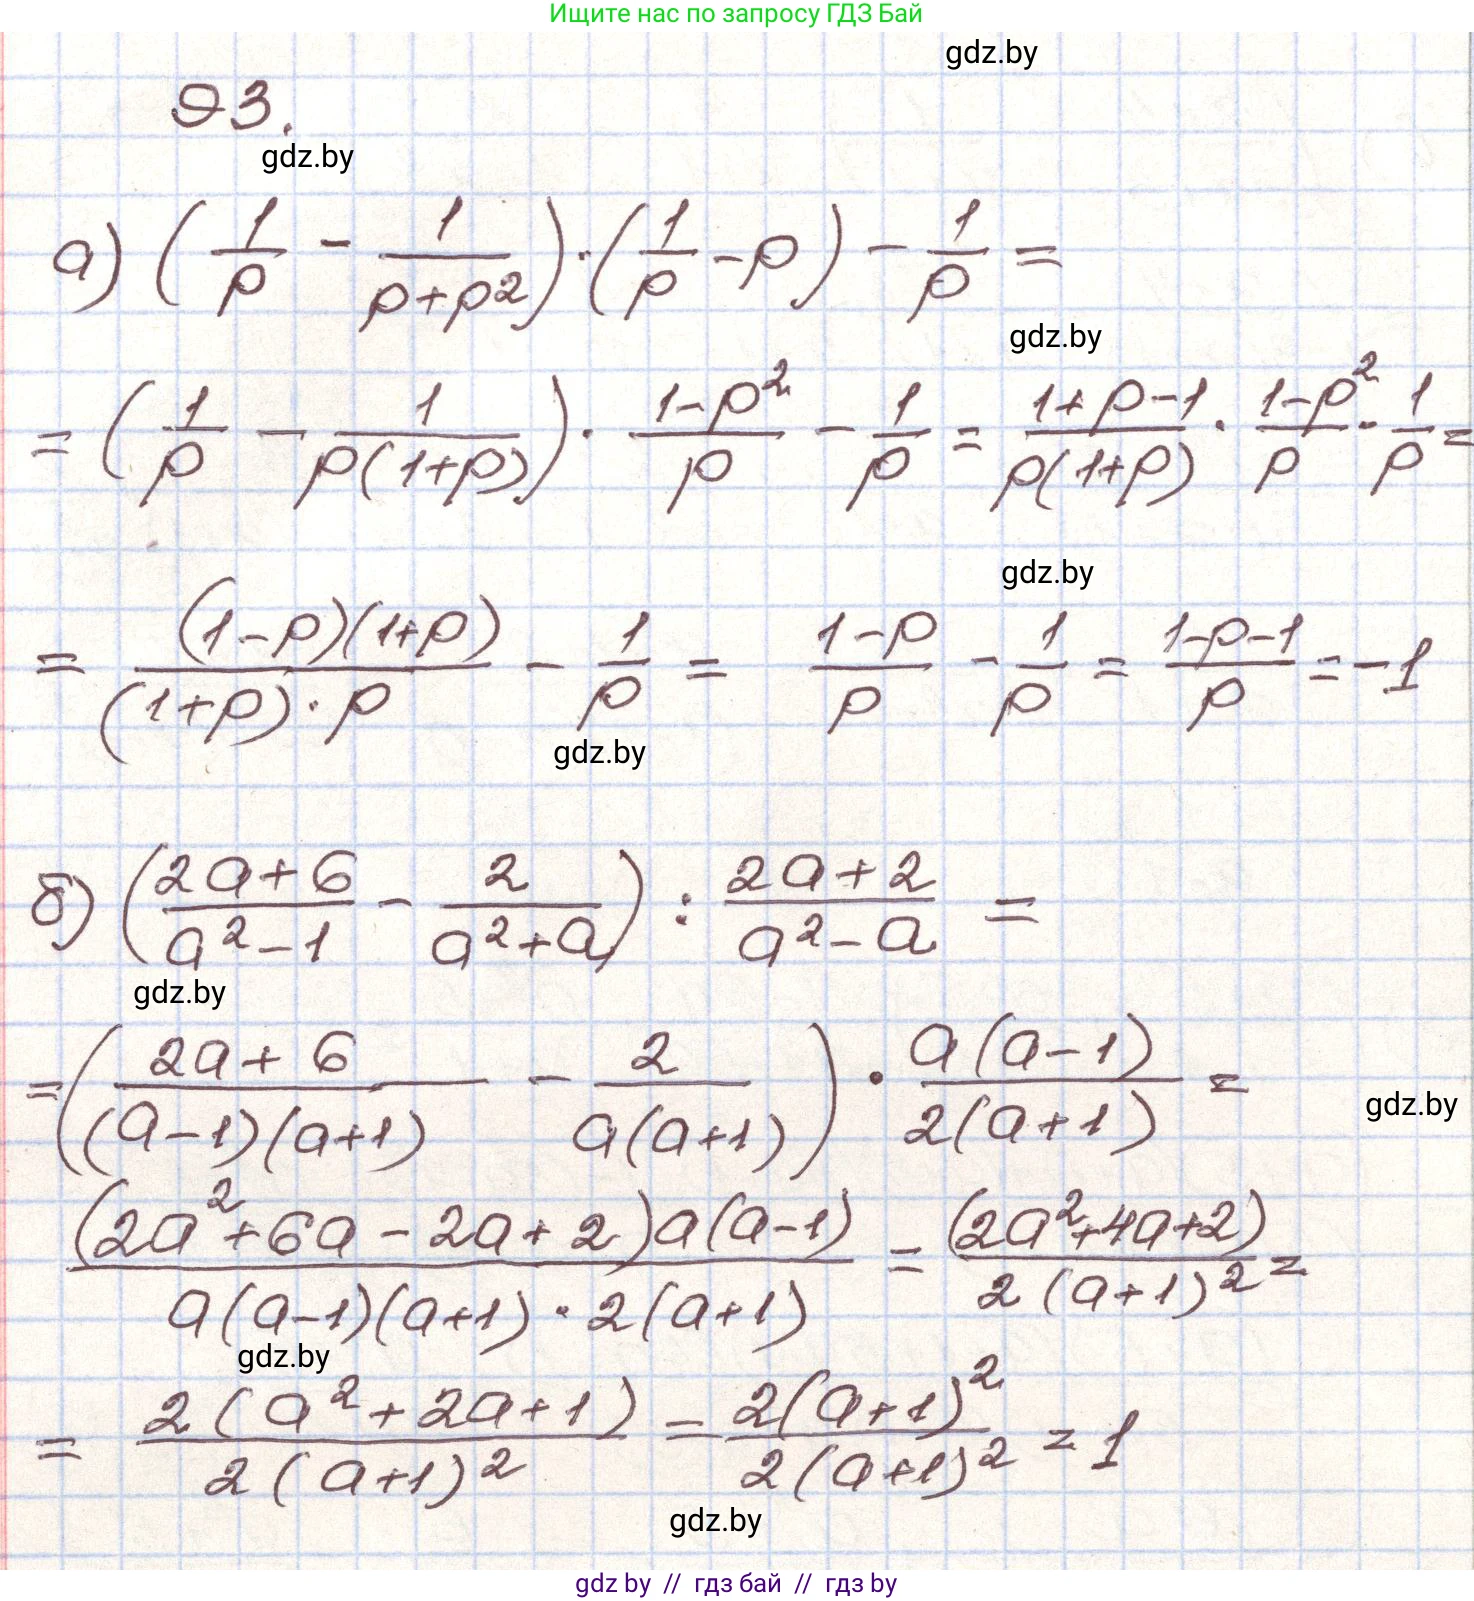 Ищите нас по запросу ГДЗ Бай
gdz.by
93.
gdz.by
а) (1/p - 1/(p+p²)) · (1/p - p) - 1/p =
gdz.by
= (1/p - 1/(p(1+p))) · (1-p²)/p - 1/p = (1+p-1)/(p(1+p)) · (1-p²)/p - 1/p =
gdz.by
= ((1-p)(1+p))/((1+p)·p) - 1/p = (1-p)/p - 1/p = (1-p-1)/p = -1
gdz.by
б) ((2a+6)/(a²-1) - 2/(a²+a)) : (2a+2)/(a²-a) =
gdz.by
= ((2a+6)/((a-1)(a+1)) - 2/(a(a+1))) · (a(a-1))/(2(a+1)) =
gdz.by
((2a²+6a-2a+2)a(a-1))/(a(a-1)(a+1)·2(a+1)) = (2a²+4a+2)/(2(a+1)²) =
gdz.by
= (2(a²+2a+1))/(2(a+1)²) = (2(a+1)²)/(2(a+1)²) = 1
gdz.by
gdz by // гдз бай // гдз by